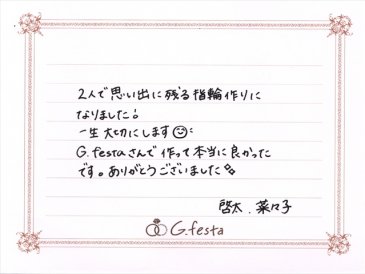 2人で思い出に残る指輪作りに
なりました!
一生大切にします☺
G.festaさんで作って本当に良かった
です。ありがとうございました
啓太. 菜々子
G.festa